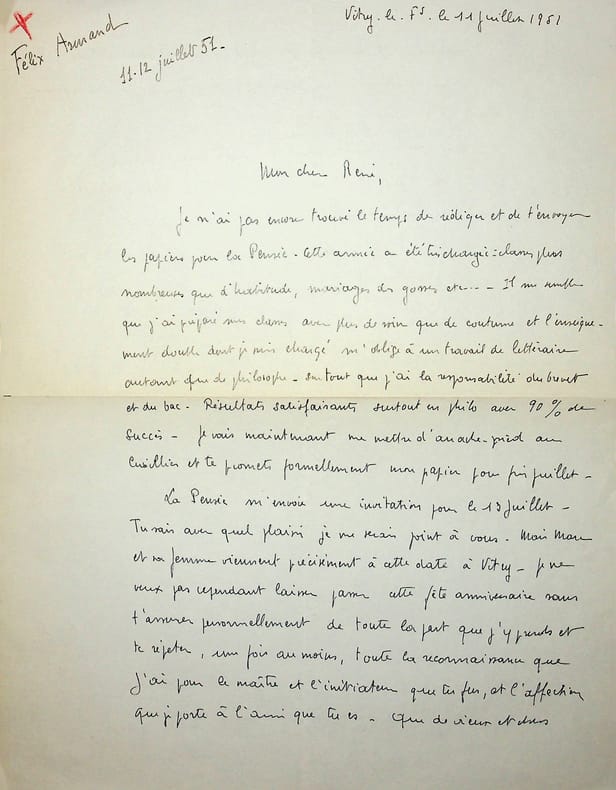 Félix Armand
Vitry. le. Fs. le 11 juillet 1951
11-12 juillet 51.
Mon cher René,
Je n'ai pas encore trouvé le temps de rédiger et de t'envoyer
les papiers pour la Pensée. Cette année a été très chargée : classes plus
nombreuses que d'habitude, mariages des gosses etc... - Il me semble
que j'ai préparé mes classes avec plus de soin que de coutume et l'enseigne-
ment double dont je suis chargé m'oblige à un travail de littéraire
autant que de philosophe - surtout que j'ai la responsabilité du brevet
et du bac. Résultats satisfaisants surtout en philo avec 90 % de
succès - Je vais maintenant me mettre d'arrache-pied au
Cuvillier et te promets formellement mon papier pour fin juillet -
La Pensée m'envoie une invitation pour le 13 juillet -
Tu sais avec quel plaisir je me serais joint à vous. Mais Marc
et sa femme viennent précisément à cette date à Vitry - Je ne
veux pas cependant laisser passer cette fête anniversaire sans
t'assurer personnellement de toute la part que j'y prends et
te répéter, une fois au moins, toute la reconnaissance que
j'ai pour le maître et l'initiateur que tu fus, et l'affection
que je porte à l'ami que tu es - Que de vieux et chers